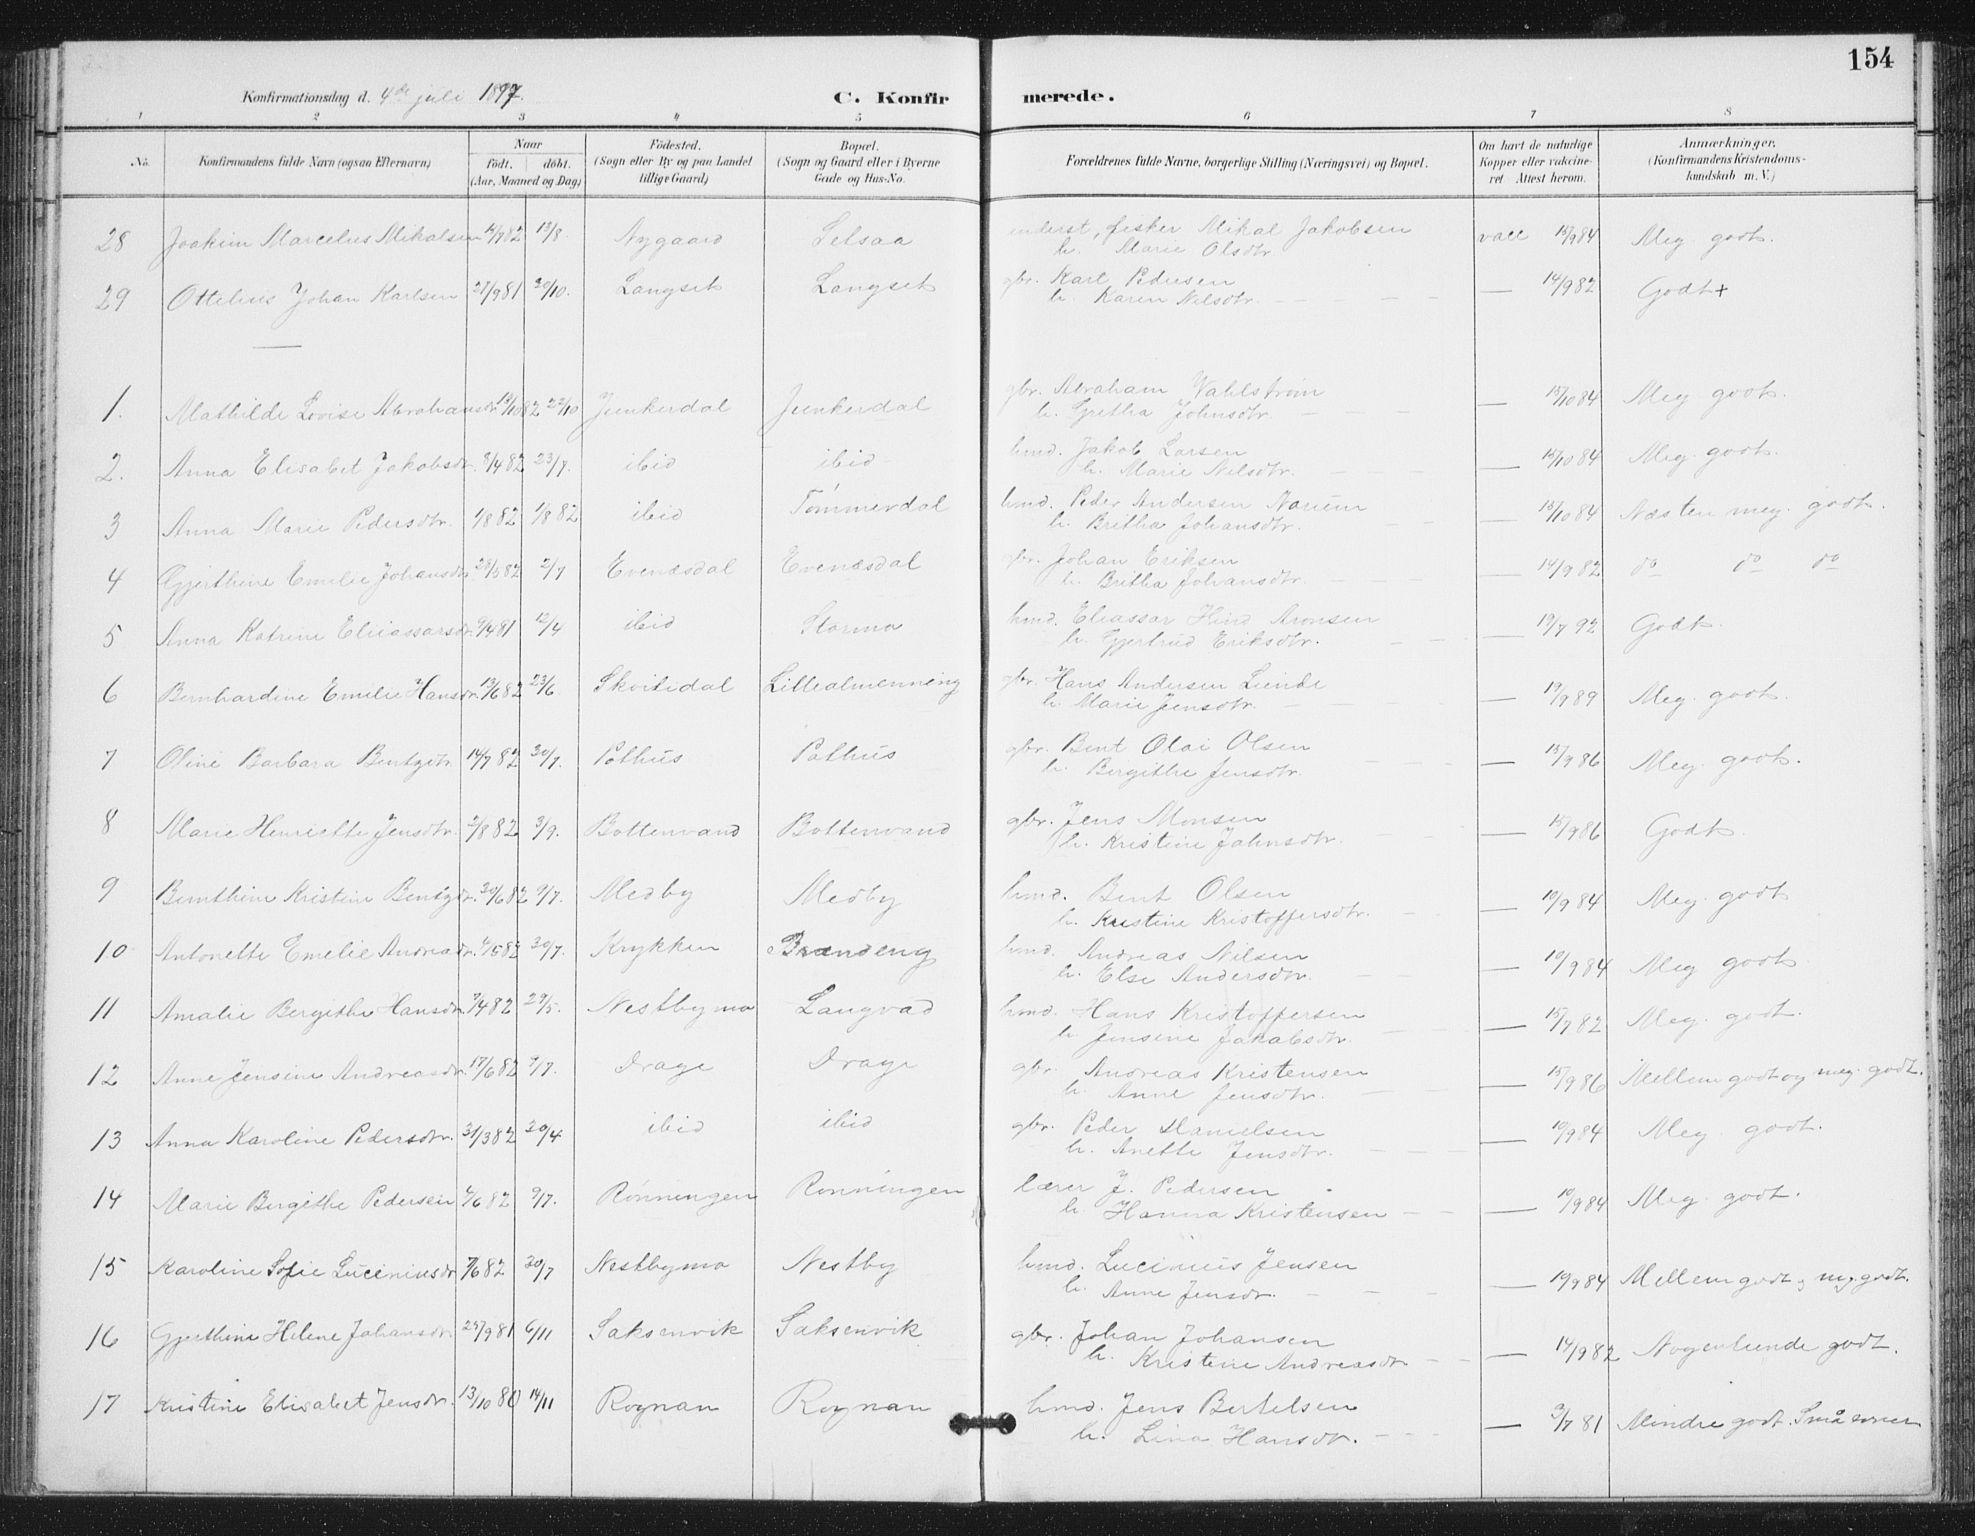 154
Konfirmationsdag d. 4de juli 1897. C. Konfirmerede.
1 2 3 4 5 6 7 8
No. Konfirmandens fulde Navn (ogsaa Efternavn) Naar født. døbt. (Aar, Maaned og Dag) Fødested. (Sogn eller By og paa Landet tillige Gaard) Bopæl. (Sogn og Gaard eller i Byerne Gade og Hus-No. Forældrenes fulde Navne, borgerlige Stilling (Næringsvei) og Bopæl. Om havt de naturlige Kopper eller vaccineret Attest herom. Anmærkninger. (Konfirmandens Kristendomskundskab m. V.)
28 Joakim Marcelius Mikalsen 82 13/8 Nygaard Selsaa inderst, fisker Mikal Jakobsen vacc 15/9 84 Meg. godt.
h. Marie Olsdtr
29 Ottelius Johan Karlsen 27/9 81 20/10. Langset Langset gbr. Karl Pedersen — 14/9 82 Godt+
h. Karen Nilsdtr.
1. Mathilde Lovise Abrahamsdr 13/10 82 22/10 Junkerdal Junkerdal gbr. Abraham Wahlstrøm — 15/10 84 Meg godt.
h. Gretha Johnsdtr.
2. Anna Elisabet Jakobsdr. 8/4 82 23/7. ibid ibid hmd. Jakob Larsen — 15/10 84 Meg. godt.
h. Marie Nilsdtr.
3 Anna Marie Pedersdtr. 1/8 82 1/8 82 ibid Tømmerdal hmd. Peder Andersen — 15/10 84 Næsten meg. godt.
h. Britha Johansdtr.
4 Gjerthine Emilie Johansdr 28/5 82 2/7 Evenæsdal Evenæsdal gbr. Johan Eriksen — 14/9 82 do do do
h. Britha Johansdtr.
5 Anna Katrine Eliassarsdr. 9/4 81 12/4 ibid Storma hmd. Eliassar Hind Aronsen — 19/7 92 Godt.
h. Gjertrud Eriksdtr.
6 Bernhardine Emilie Hansdr. 13/6 82 23/6. Skvitidal Lillealmenning gbr. Hans Andersen Lunde — 19/9 89 Meg. godt.
h. Marie Jensdtr.
7 Oline Barbara Bentzdtr. 14/7 82 30/7. Pothus Pothus gbr. Bent Olai Olsen — 15/9 86 Meg. godt.
h. Bergithe Jensdtr.
8 Marie Henriette Jensdtr. 2/8 82 3/9. Bottenvand Bottenvand gbr. Jens Monsen — 15/9 86 Godt.
h. Kristine Johnsdtr.
9 Bernthine Kristine Bentzdr. 30/6 82 9/7. Medby Medby hmd. Bent Olsen — 10/9 84 Meg. godt
h. Kristine Kristoffersdtr.
10 Antonette Emelie Andreasdr. 4/5 82 30/7. Krykken Brændeng hmd. Andreas Nilsen — 10/9 84 Meg godt
h. Else Andersdtr.
11 Amalie Bergithe Hansdr. 9/4 82 29/5. Nestbymo Langvad hmd. Hans Kristoffersen — 15/7 82 Meg. godt.
h. Jensine Jakobsdtr.
12 Anne Jensine Andreasdr. 17/6 82 9/7. Drage Drage gbr. Andreas Kristensen — 15/9 86 Mellem godt og meg. godt.
h. Anne Jensdtr.
13 Anna Karoline Pedersdtr. 31/3 82 20/4 ibid ibid gbr. Peder Danielsen — 10/9 84 Meg. godt.
h. Anette Jensdtr.
14 Marie Bergithe Pedersen 4/6 82 9/7. Rønningen Rønningen lærer J. Pedersen — 10/9 84 Meg. godt.
h. Hanna Kristensen
15 Karoline Sofie Luciniusdr 7/6 82 30/7 Nestbymo Nestby hmd. Lucinius Jensen — 10/9 84 Mellem godt og meg. godt.
h. Anne Jensdr.
16 Gjerthine Helene Johansdr. 29/9 81 6/11 Saksenvik Saksenvik gbr. Johan Johansen — 14/9 82 Nogenlunde godt.
h. Kristine Andreasdr
17 Kristine Elisabet Jensdr. 13/10 80 14/11 Rognan Rognan hmd. Jens Bertelsen — 3/7 81 Mindre godt. Små evner
h. Lina Hansdr.